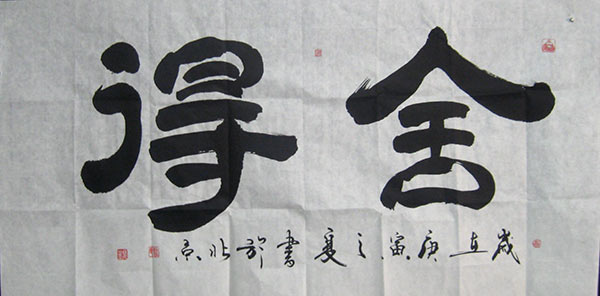 舍得
歲在庚寅之夏書於北京